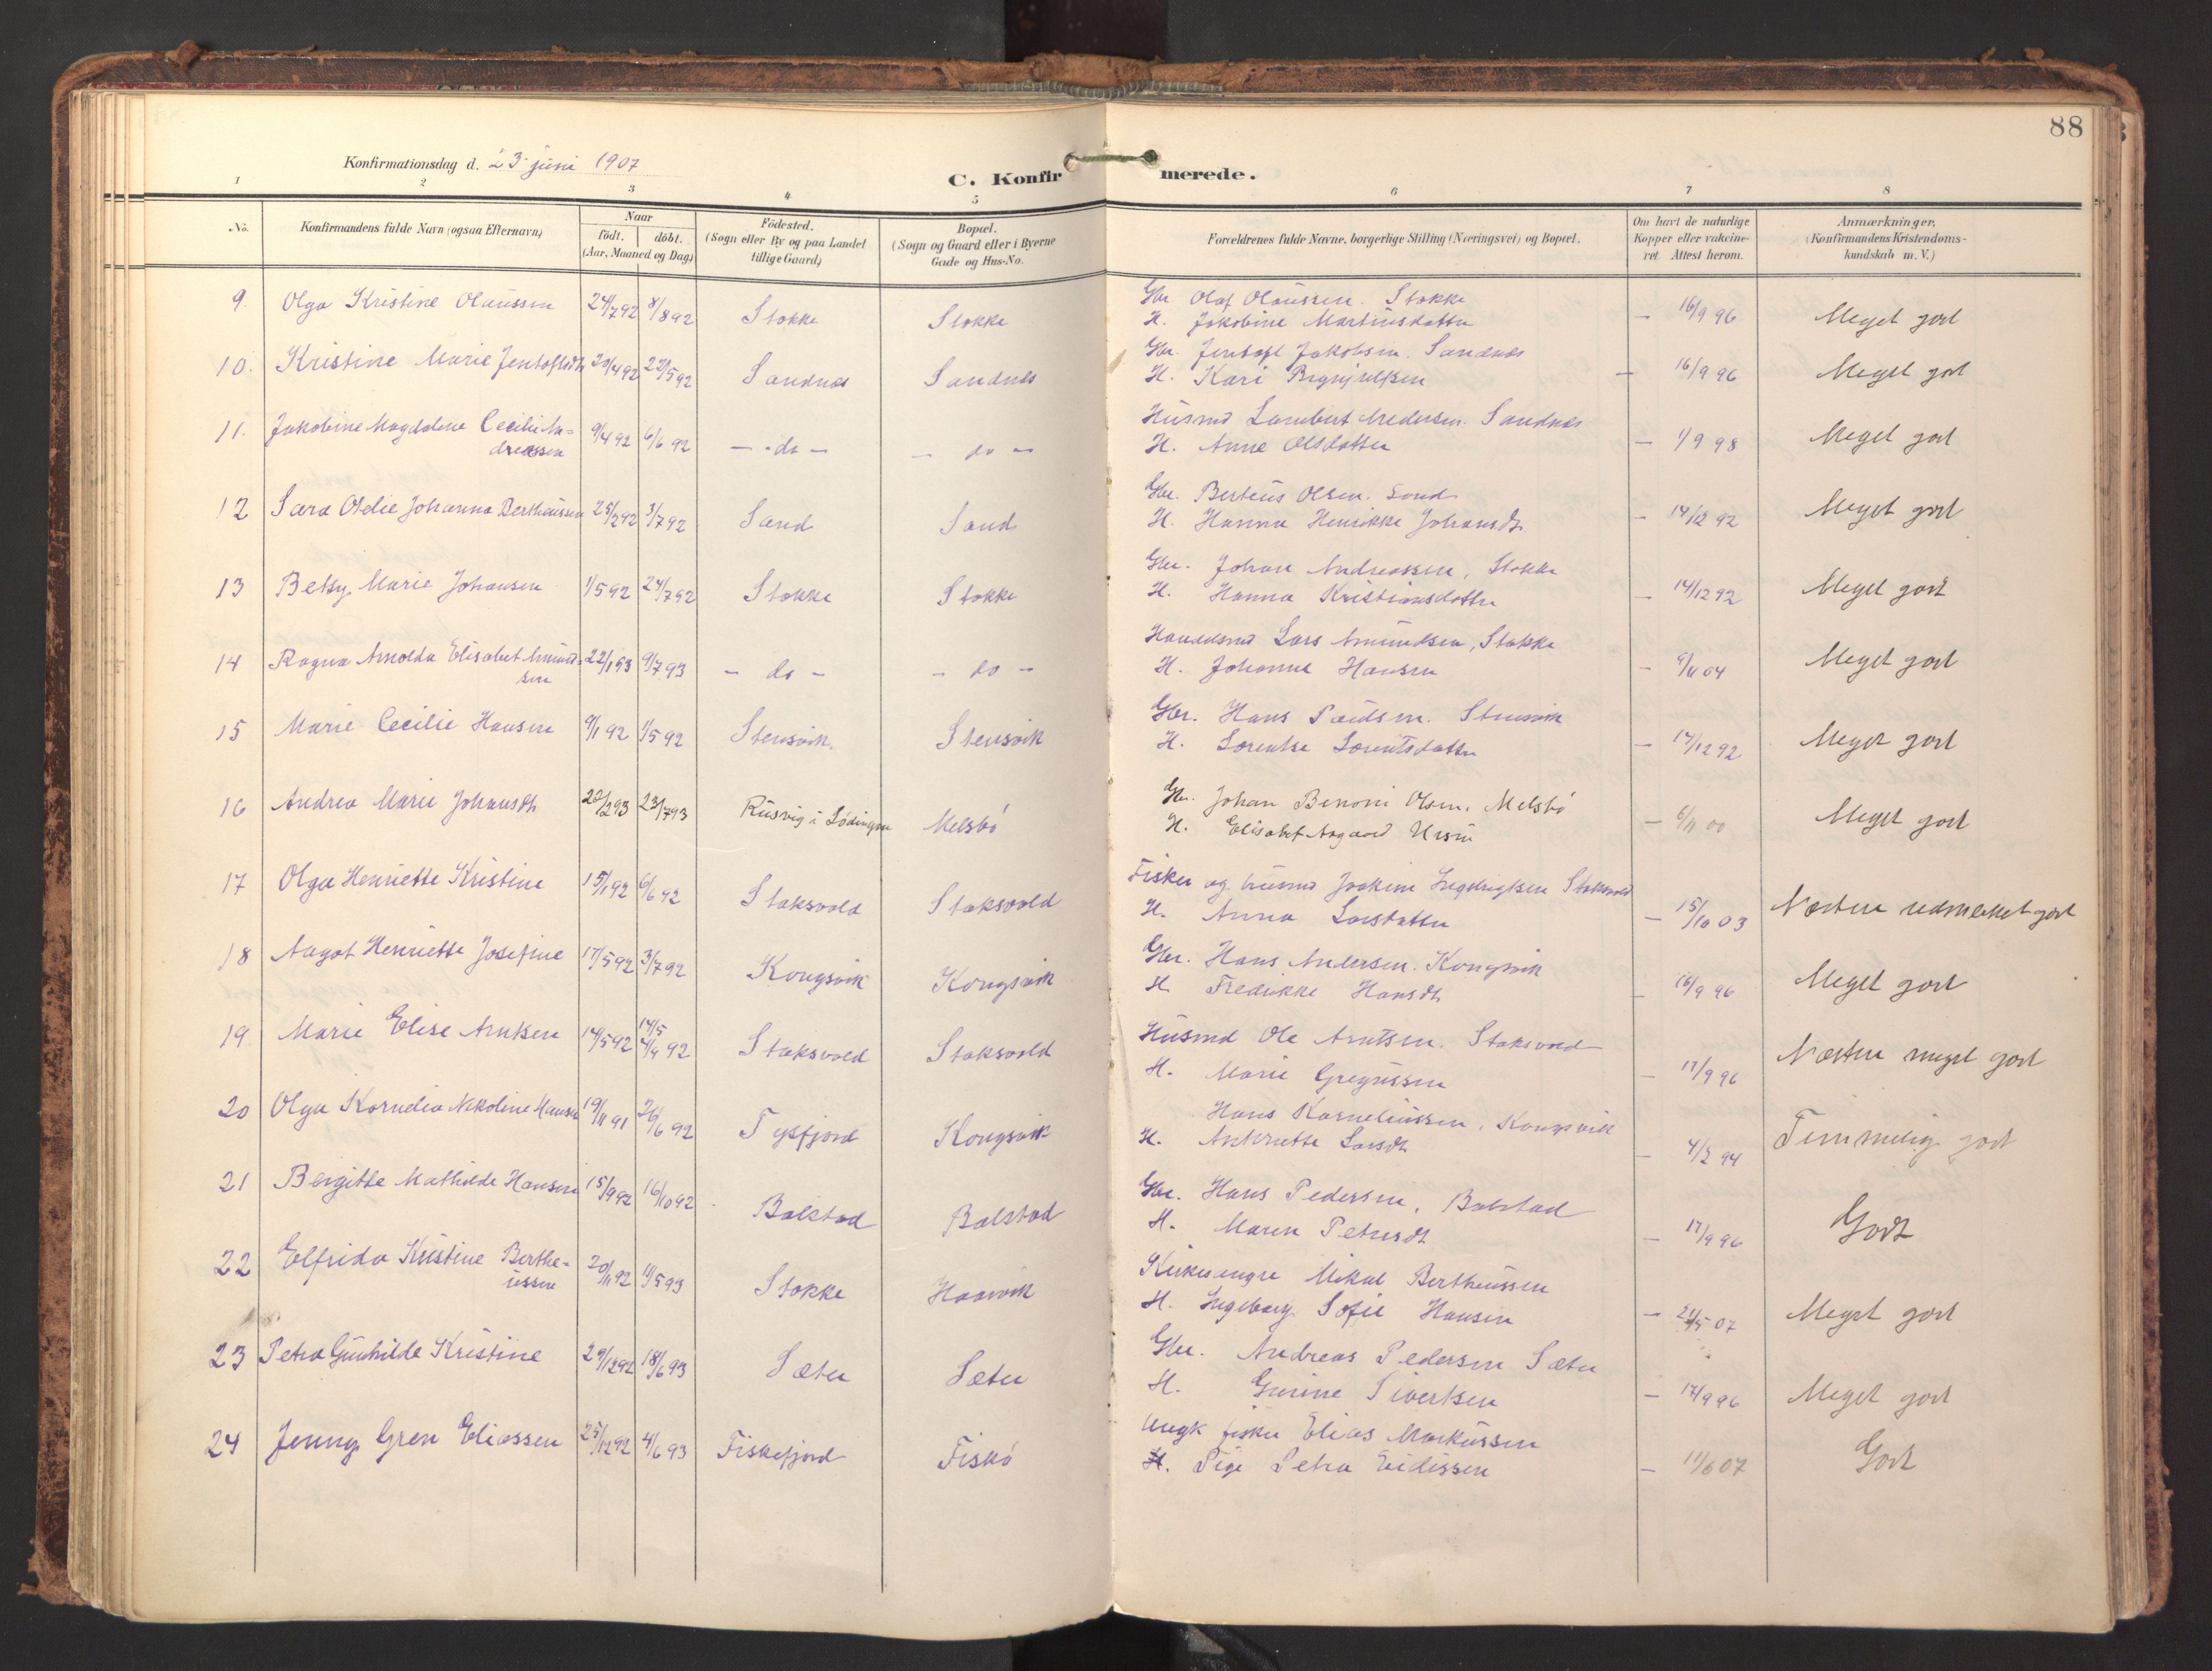 88
Konfirmationsdag d. 23 juni 1907
C. Konfirmerede.
1 2 3 4 5 6 7 8
No. Konfirmandens fulde Navn (ogsaa Efternavn) Naar født. døbt. (Aar, Maaned og Dag) Födested. (Sogn eller By og paa Landet tillige Gaard) Bopæl. (Sogn og Gaard eller i Byerne Gade og Hus-No. Forældrenes fulde Navne, borgerlige Stilling (Næringsvei) og Bopæl. Om havt de naturlige Kopper eller vakcineret. Attest herom. Anmærkninger. (Konfirmandens Kristendomskundskab m. V.)
9. Olga Kristine Olaussen 24/7 92 8/8 92 Stokke Stokke Gbr. Olaf Olaussen. Stokke
H. Jakobine Martinsdatter — 16/9 96 Meget godt
10. Kristine Marie Jentoftsdtr 20/4 92 22/5 92 Sandnes Sandnes Gbr. Jentoft Jakobsen. Sandnes
H. Kari — 16/9 96 Meget godt
11. Jakobine Magdalene Cecilie An=
dreassen 9/4 92 6/6 92 — do — — do — Husmd Lambert Andersen. Sandnes
H. Anne Olsdatter — 1/9 98 Meget godt
12 Sara Otelie Johanna Bertheussen 25/2 92 3/7 92 Sand Sand Gbr. Berteus Olsen. Sand
H. Hanna Henrikke Johansdtr — 14/12 92 Meget godt
13 Betsy Marie Johansen 1/5 92 24/7 92 Stokke Stokke Gbr. Johan Andreassen, Stokke
H. Hanna Kristiansdatter — 14/12 92 Meget godt
14 Ragna Arnolda Elisabet Amund=
sen 22/1 93 9/7 93 — do — — do — Handelsmd Lars Amundsen, Stokke
H. Johanna Hansen — 9/11 04 Meget godt
15 Marie Cecilie Hansen 9/1 92 1/5 92 Stensvik Stensvik Gbr. Hans Paulsen. Stensvik
H. Lorentse Lorentsdatter — 14/12 92 Meget godt
16 Andrea Marie Johansdtr 20/2 93 23/7 93 Rusvig i Lødingen Melsbö Gbr. Johan Benoni Olsen. Melsbö
H. Elisabet Aagaard Ursin — 6/11 00 Meget godt
17 Olga Henriette Kristine 15/1 92 6/6 92 Staksvold Staksvold Fisker og husmd Joakim Ingebrigtsen Staksvold
H. Anna Larsdatter — 15/10 03 Næsten udmerket godt
18 Aagot Henriette Josefine 17/5 92 3/7 92 Kongsvik Kongsvik Gbr. Hans Andersen. Kongsvik
H. Fredrikke Hansdtr — 16/9 96 Meget godt
19 Marie Elise Arntsen 14/5 92 14/5 4/9 92 Staksvold Staksvold Husmd Ole Arntsen. Staksvold
H. Marie Gregussen — 17/9 96 Næsten meget godt
20 Olga Kornelia Nikoline Hansen 19/11 91 26/6 92 Tysfjord Kongsvik Hans Korneliussen, Kongsvik
H. Antonette Larsdtr — 4/2 94 Temmelig godt
21 Bergitte Mathilde Hansen 15/9 92 16/10 92 Balstad Balstad Gbr. Hans Pedersen, Balstad
H. Maren Petersdtr — 17/9 96 Godt
22 Elfrida Kristine Berthe=
ussen 20/11 92 11/5 93 Stokke Haavik Kirkesanger Mikal Bertheussen
H. Ingeborg Sofie Hansen — 21/5 07 Meget godt
23 Petra Gunhilde Kristine 29/12 92 18/6 93 Sæter Sæter Gbr. Andreas Pedersen Sæter
H. Gurine Sivertsen — 17/9 96 Meget godt
24 Jenny Gren Eliassen 25/12 92 4/6 93 Fiskefjord Fiskö Ungk fisker Elias Markussen
H. Pige Petra Eidissen — 11/6 07 Godt